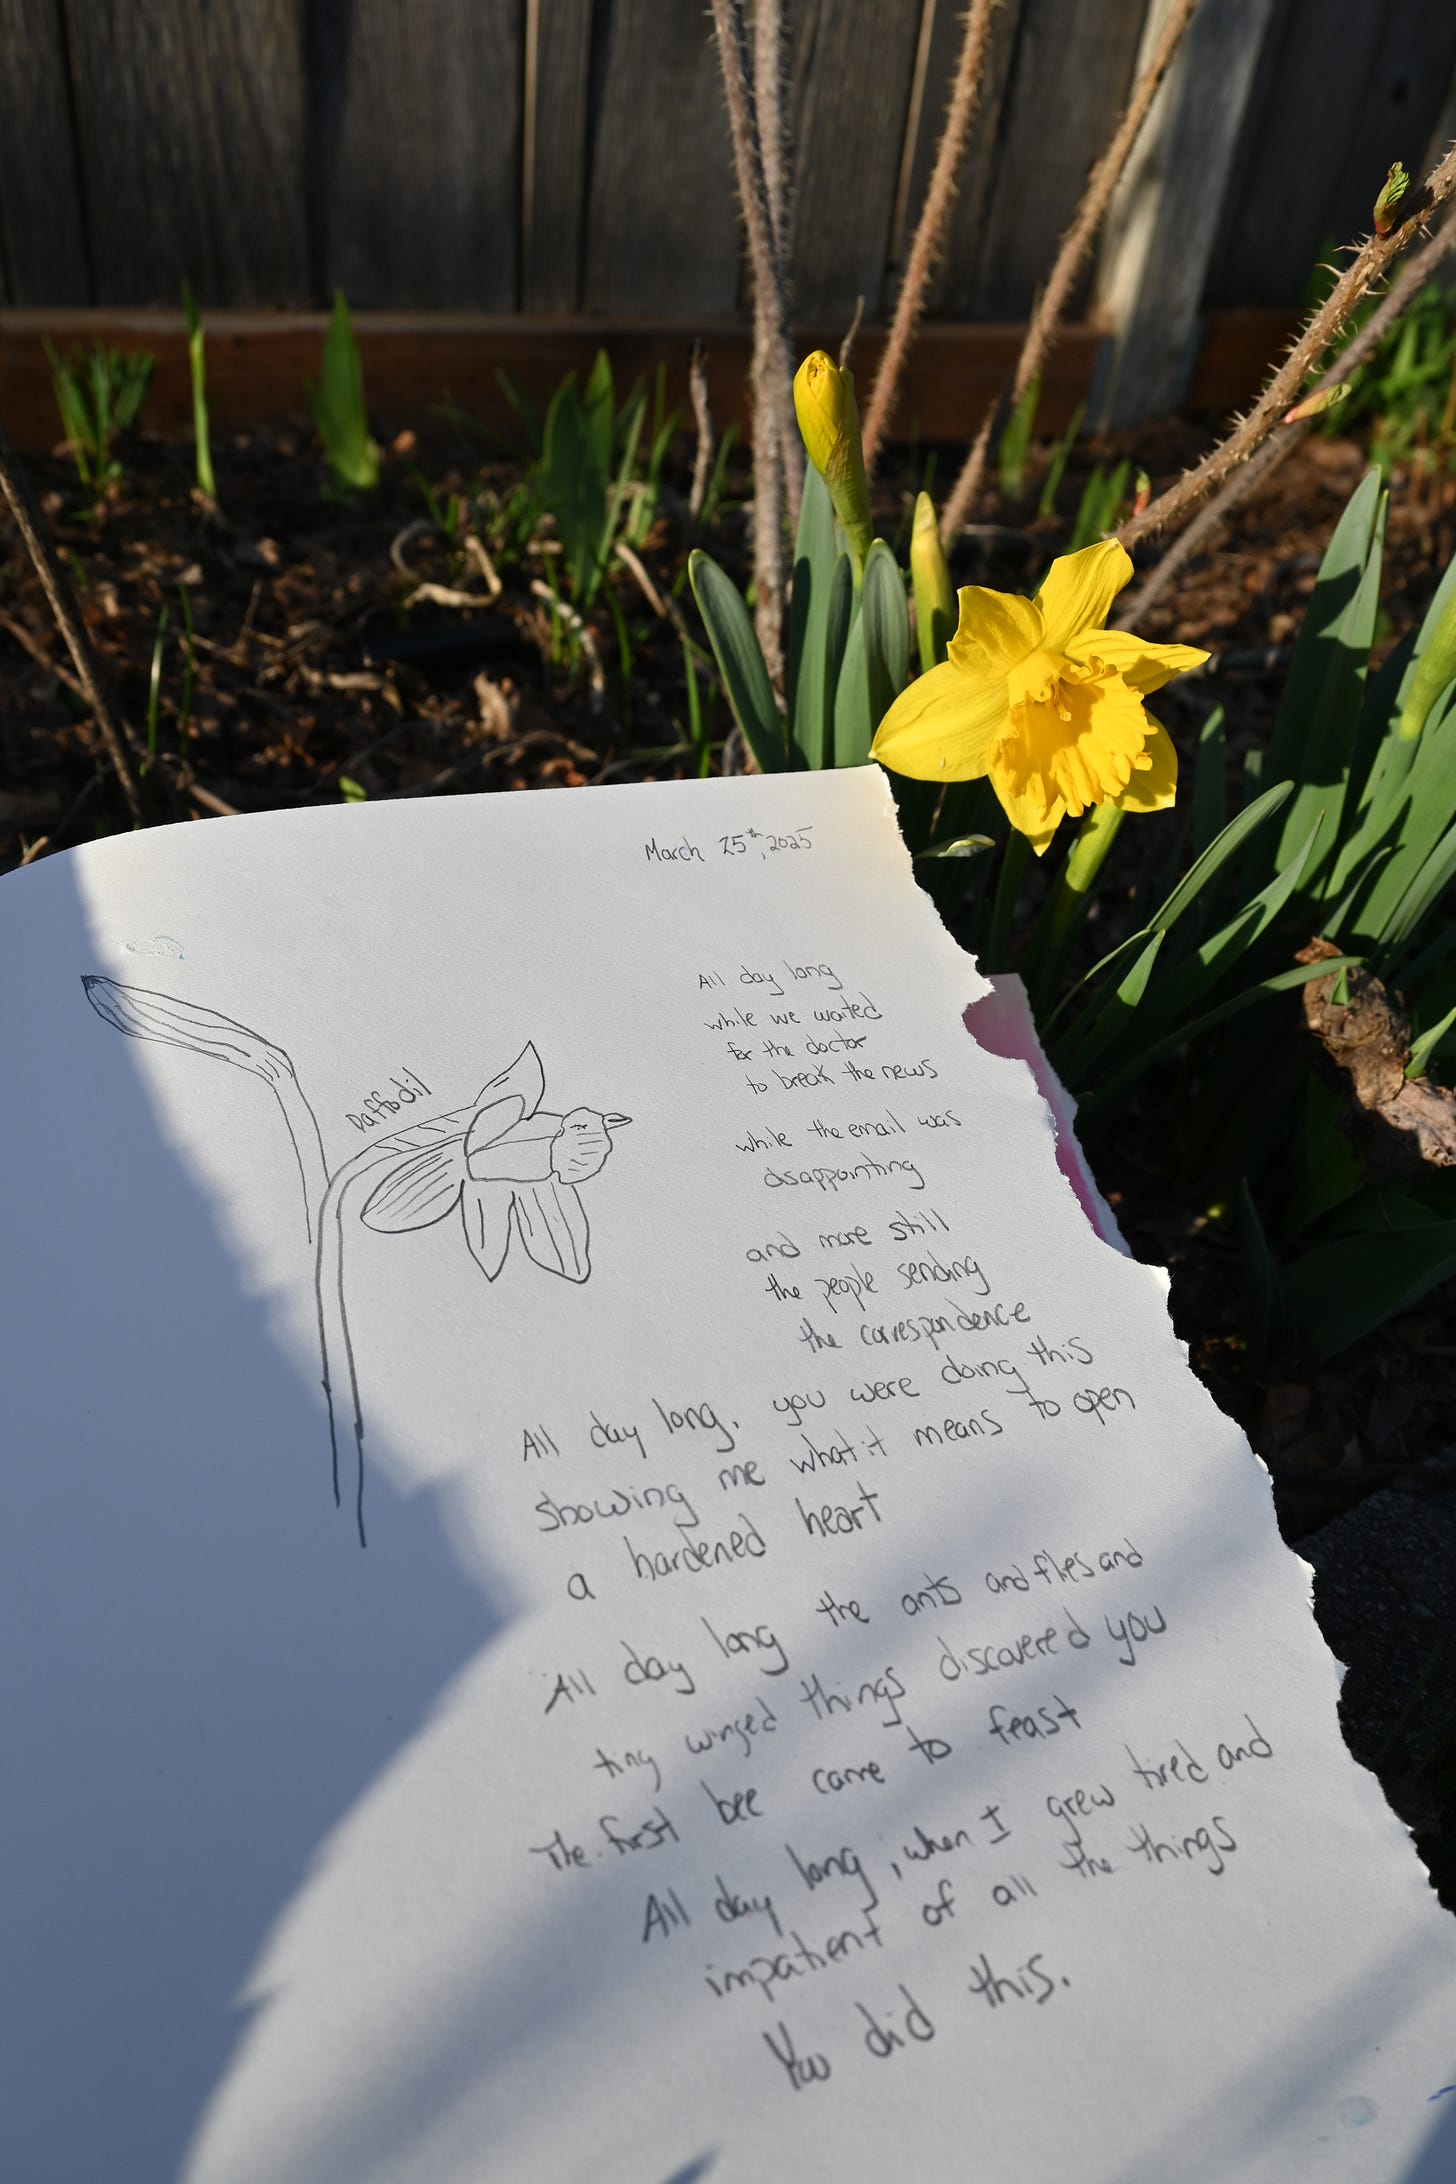 March 25th, 2025
Daffodil
All day long
while we waited
for the doctor
to break the news
while the email was
disappointing
and more still
the people sending
the correspondence
All day long, you were doing this
showing me what it means to open
a hardened heart
All day long the ants and flies and
tiny winged things discovered you
The first bee came to feast
All day long, when I grew tired and
impatient of all the things
You did this.